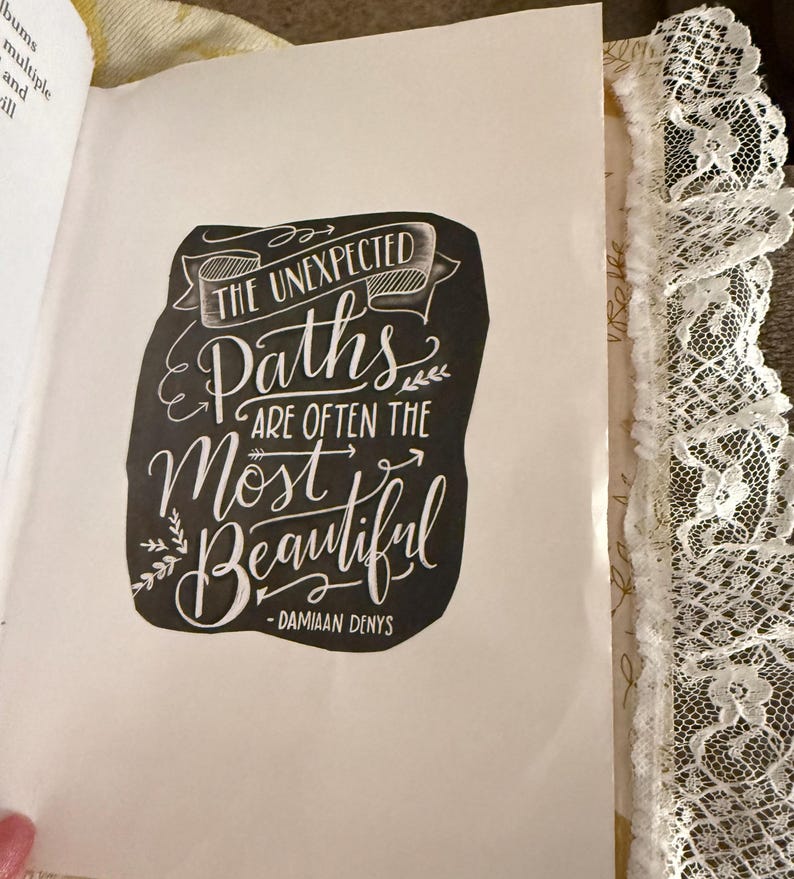 lbums
multiple
and
ill
THE UNEXPECTED
Paths
ARE OFTEN THE
Most
Beautiful
- DAMIAAN DENYS